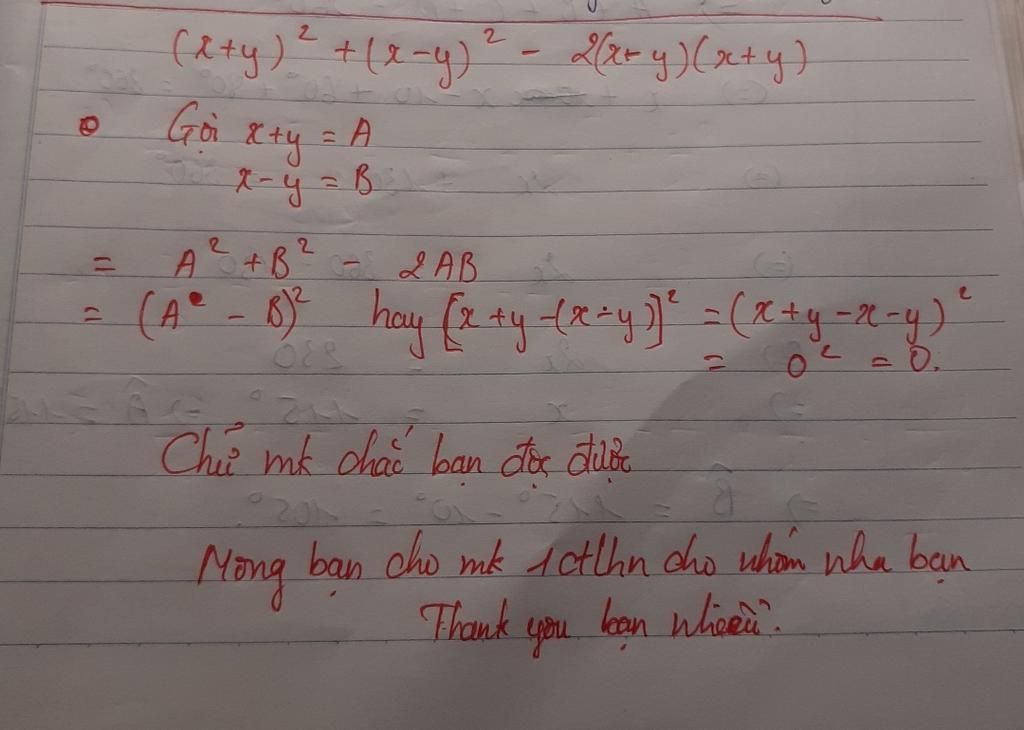 (x+y)² + (x-y)² - 2(x+y)(x+y)
Gọi x+y = A
x-y = B
= A² + B² - 2AB
= (A - B)² hay [x+y-(x-y)]² = (x+y-x-y)²
= 0² = 0.
Chữ mk chắc bạn đọc được
Mong bạn cho mk 1 ctlhn cho nhóm nha bạn
Thank you bạn nhiều.